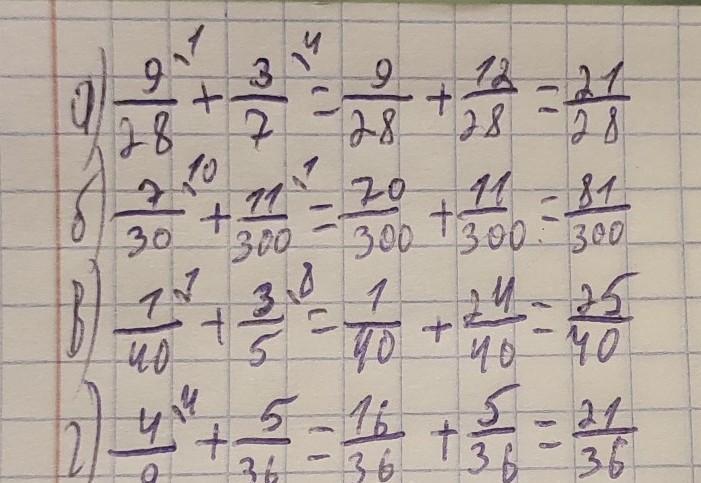 а) 9/28 ⁽¹ + 3/7 ⁽⁴ = 9/28 + 12/28 = 21/28
б) 7/30 ⁽¹⁰ + 11/300 ⁽¹ = 70/300 + 11/300 = 81/300
в) 1/40 ⁽¹ + 3/5 ⁽⁸ = 1/40 + 24/40 = 25/40
г) 4/9 ⁽⁴ + 5/36 = 16/36 + 5/36 = 21/36